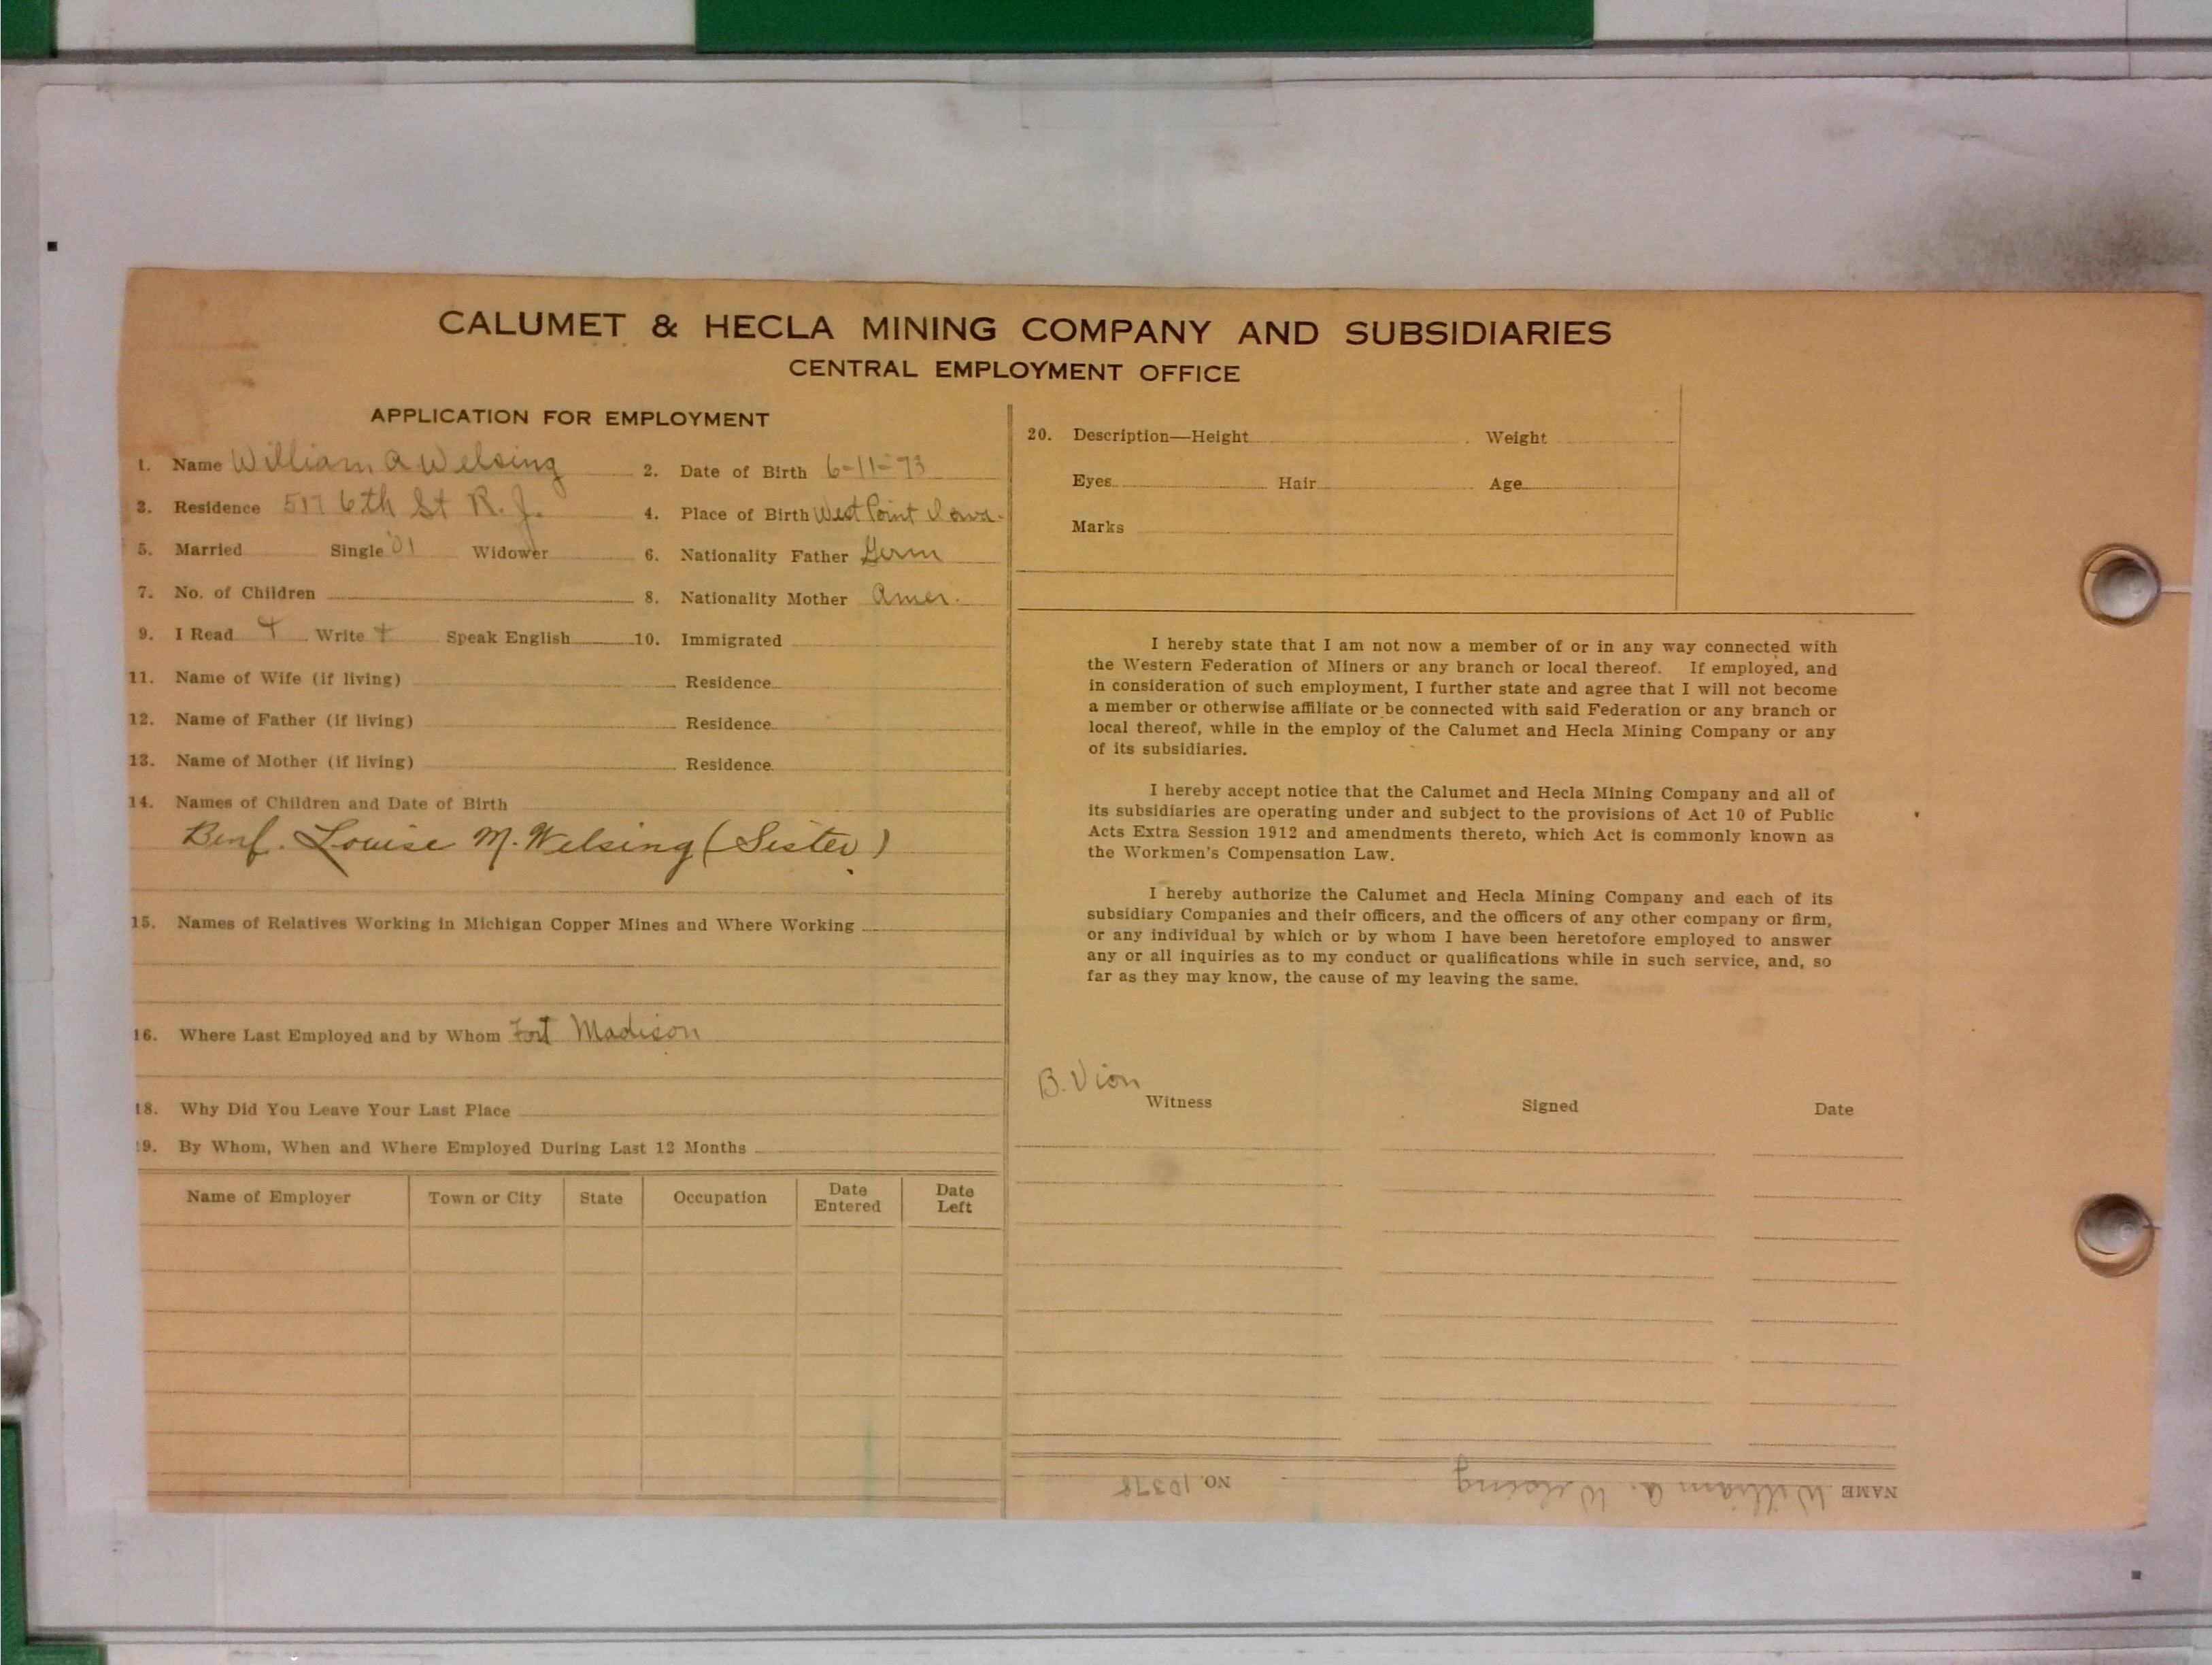 CALUMET & HECLA MINING COMPANY AND SUBSIDIARIES
CENTRAL EMPLOYMENT OFFICE
APPLICATION FOR EMPLOYMENT
1. Name William A Welsing 2. Date of Birth 6-11-73
3. Residence 517 6th St R. J. 4. Place of Birth West Point Iowa.
5. Married Single 01 Widower 6. Nationality Father Germ
7. No. of Children 8. Nationality Mother Amer.
9. I Read + Write + Speak English 10. Immigrated
11. Name of Wife (if living) Residence
12. Name of Father (if living) Residence
13. Name of Mother (if living) Residence
14. Names of Children and Date of Birth
Benf. Louise M. Welsing (Sister)
15. Names of Relatives Working in Michigan Copper Mines and Where Working
16. Where Last Employed and by Whom Fort Madison
18. Why Did You Leave Your Last Place
19. By Whom, When and Where Employed During Last 12 Months
Name of Employer Town or City State Occupation Date Entered Date Left
20. Description—Height Weight
Eyes Hair Age
Marks
I hereby state that I am not now a member of or in any way connected with
the Western Federation of Miners or any branch or local thereof. If employed, and
in consideration of such employment, I further state and agree that I will not become
a member or otherwise affiliate or be connected with said Federation or any branch or
local thereof, while in the employ of the Calumet and Hecla Mining Company or any
of its subsidiaries.
I hereby accept notice that the Calumet and Hecla Mining Company and all of
its subsidiaries are operating under and subject to the provisions of Act 10 of Public
Acts Extra Session 1912 and amendments thereto, which Act is commonly known as
the Workmen's Compensation Law.
I hereby authorize the Calumet and Hecla Mining Company and each of its
subsidiary Companies and their officers, and the officers of any other company or firm,
or any individual by which or by whom I have been heretofore employed to answer
any or all inquiries as to my conduct or qualifications while in such service, and, so
far as they may know, the cause of my leaving the same.
B. Vion
Witness Signed Date
NAME William A. Welsing NO. 10378